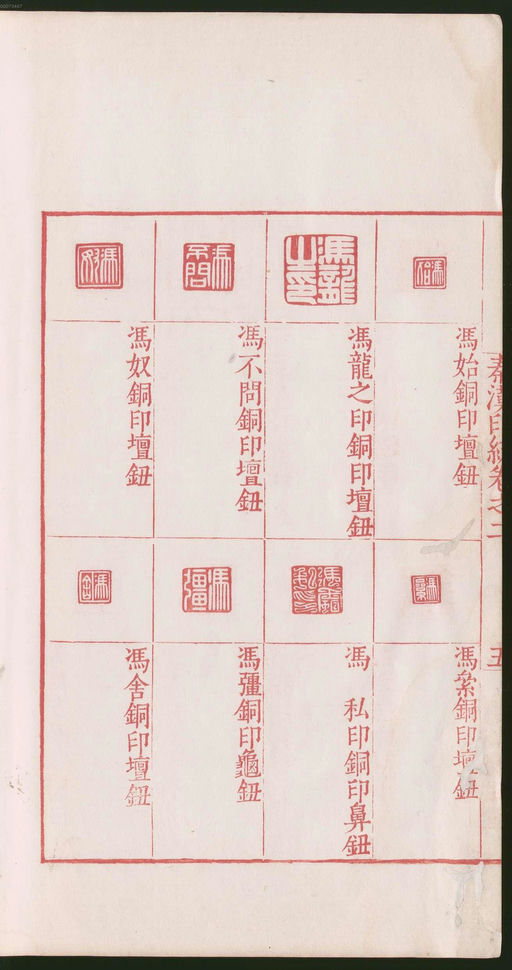 秦漢印統卷之二
五
馮始銅印壇鈕
馮龍之印銅印壇鈕
馮不問銅印壇鈕
馮奴銅印壇鈕
馮絫銅印壇鈕
馮 私印銅印鼻鈕
馮彊銅印龜鈕
馮舍銅印壇鈕